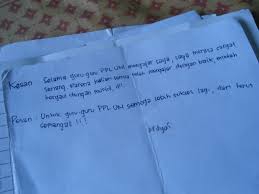 Kesan : Selama guru-guru PPL UNJ mengajar saya, saya merasa sangat
senang. Karena kalian semua telah mengajar dengan baik, mudah
bergaul dengan murid, !!!
Pesan : Untuk guru-guru PPL UNJ semoga lebih sukses lagi, dan terus
semangat !!!